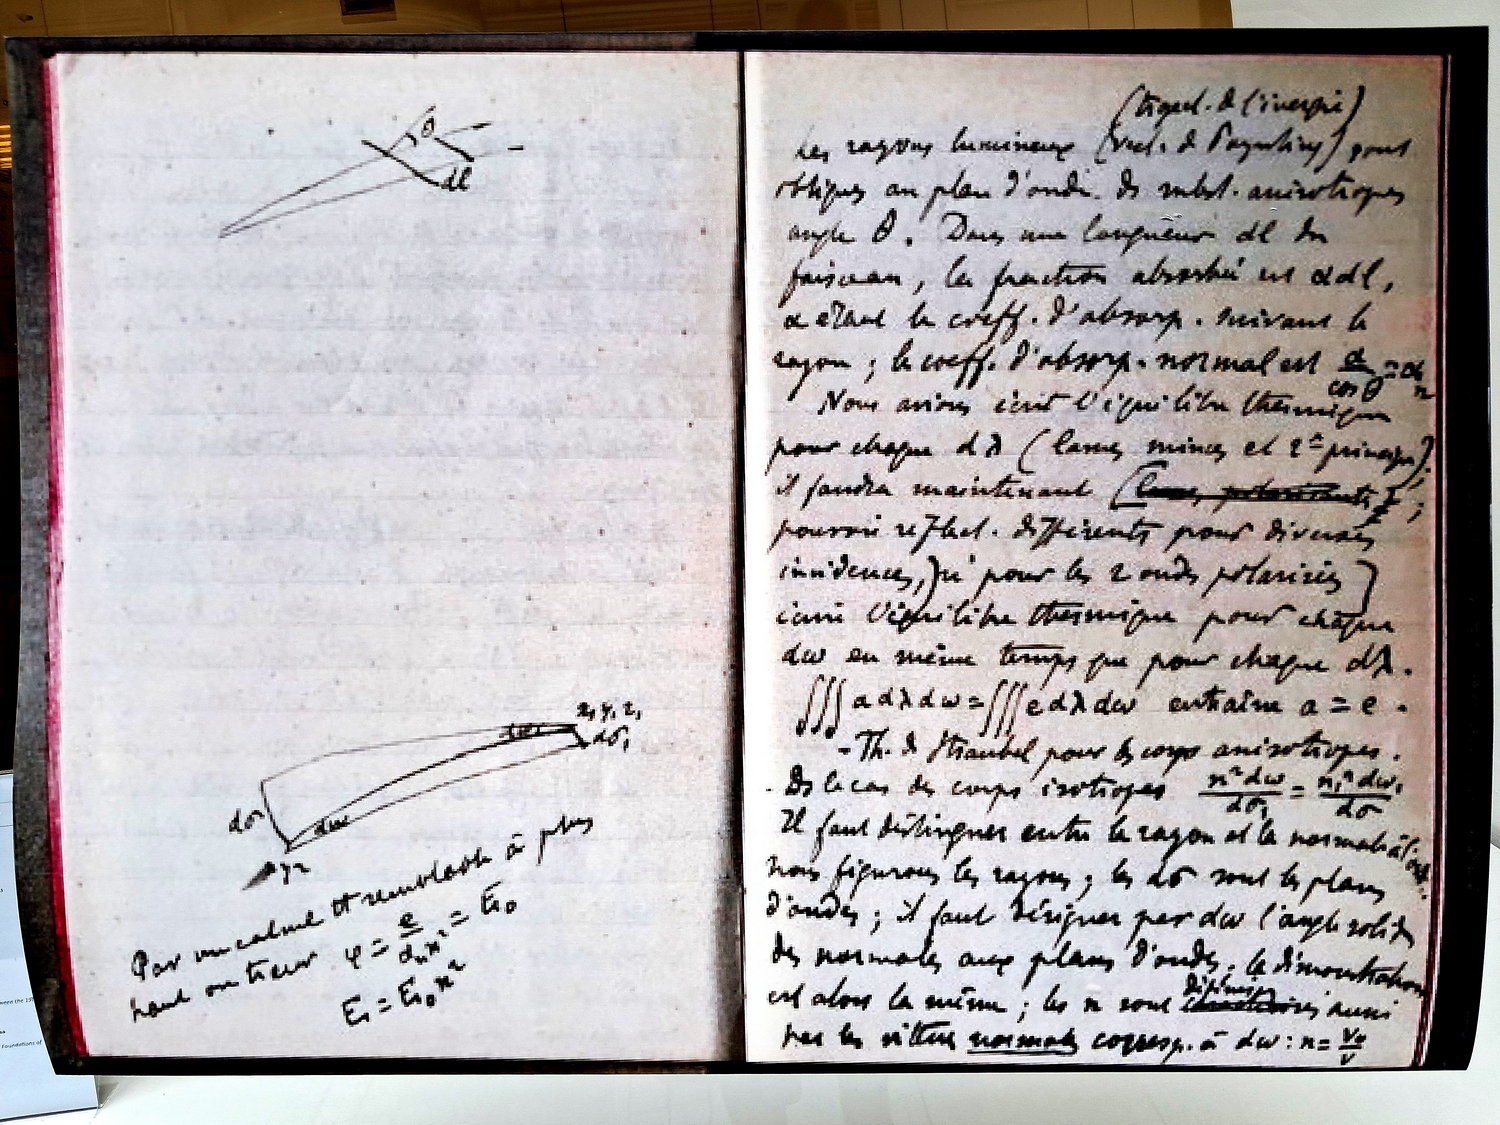 θ
dl
x, y, z,
dω,
dσ,
dσ
dω
Par un calcul tt semblable à plus
haut on trouve φ = e/αₙn² = E₀
E = E₀n²
(de l'énergie)
Les rayons lumineux (vect. de Poynting) sont
obliques au plan d'onde. ds subst. anisotropes
angle θ. Dans une longueur dl du
faisceau, la fraction absorbée est αdl,
α étant le coeff. d'absorp. suivant le
rayon ; le coeff. d'absorp. normal est α/cos θ = αₙ
Nous avions écrit l'équilibre thermique
pour chaque dλ (lames minces et 2ᵉ principe) ;
il faudra maintenant
pouvoir réflect. différents pour diverses
incidences, pour les 2 ondes polarisées)
écrire l'équilibre thermique pour chaque
dω en même temps que pour chaque dλ.
∫∫∫ a dλ dω = ∫∫∫ e dλ dω entraîne a = e.
- Th. de Straubel pour les corps anisotropes.
Ds le cas des corps isotropes n²dω/dσ₁ = n₁²dω₁/dσ
Il faut distinguer entre le rayon et la normale à l'onde.
nous figurons les rayons ; les dσ sont les plans
d'ondes ; il faut désigner par dω l'angle solide
des normales aux plans d'ondes. la démonstration
est alors la même ; les n sont définis aussi
par les vitesses normales corresp. à dω : n = V₀/V